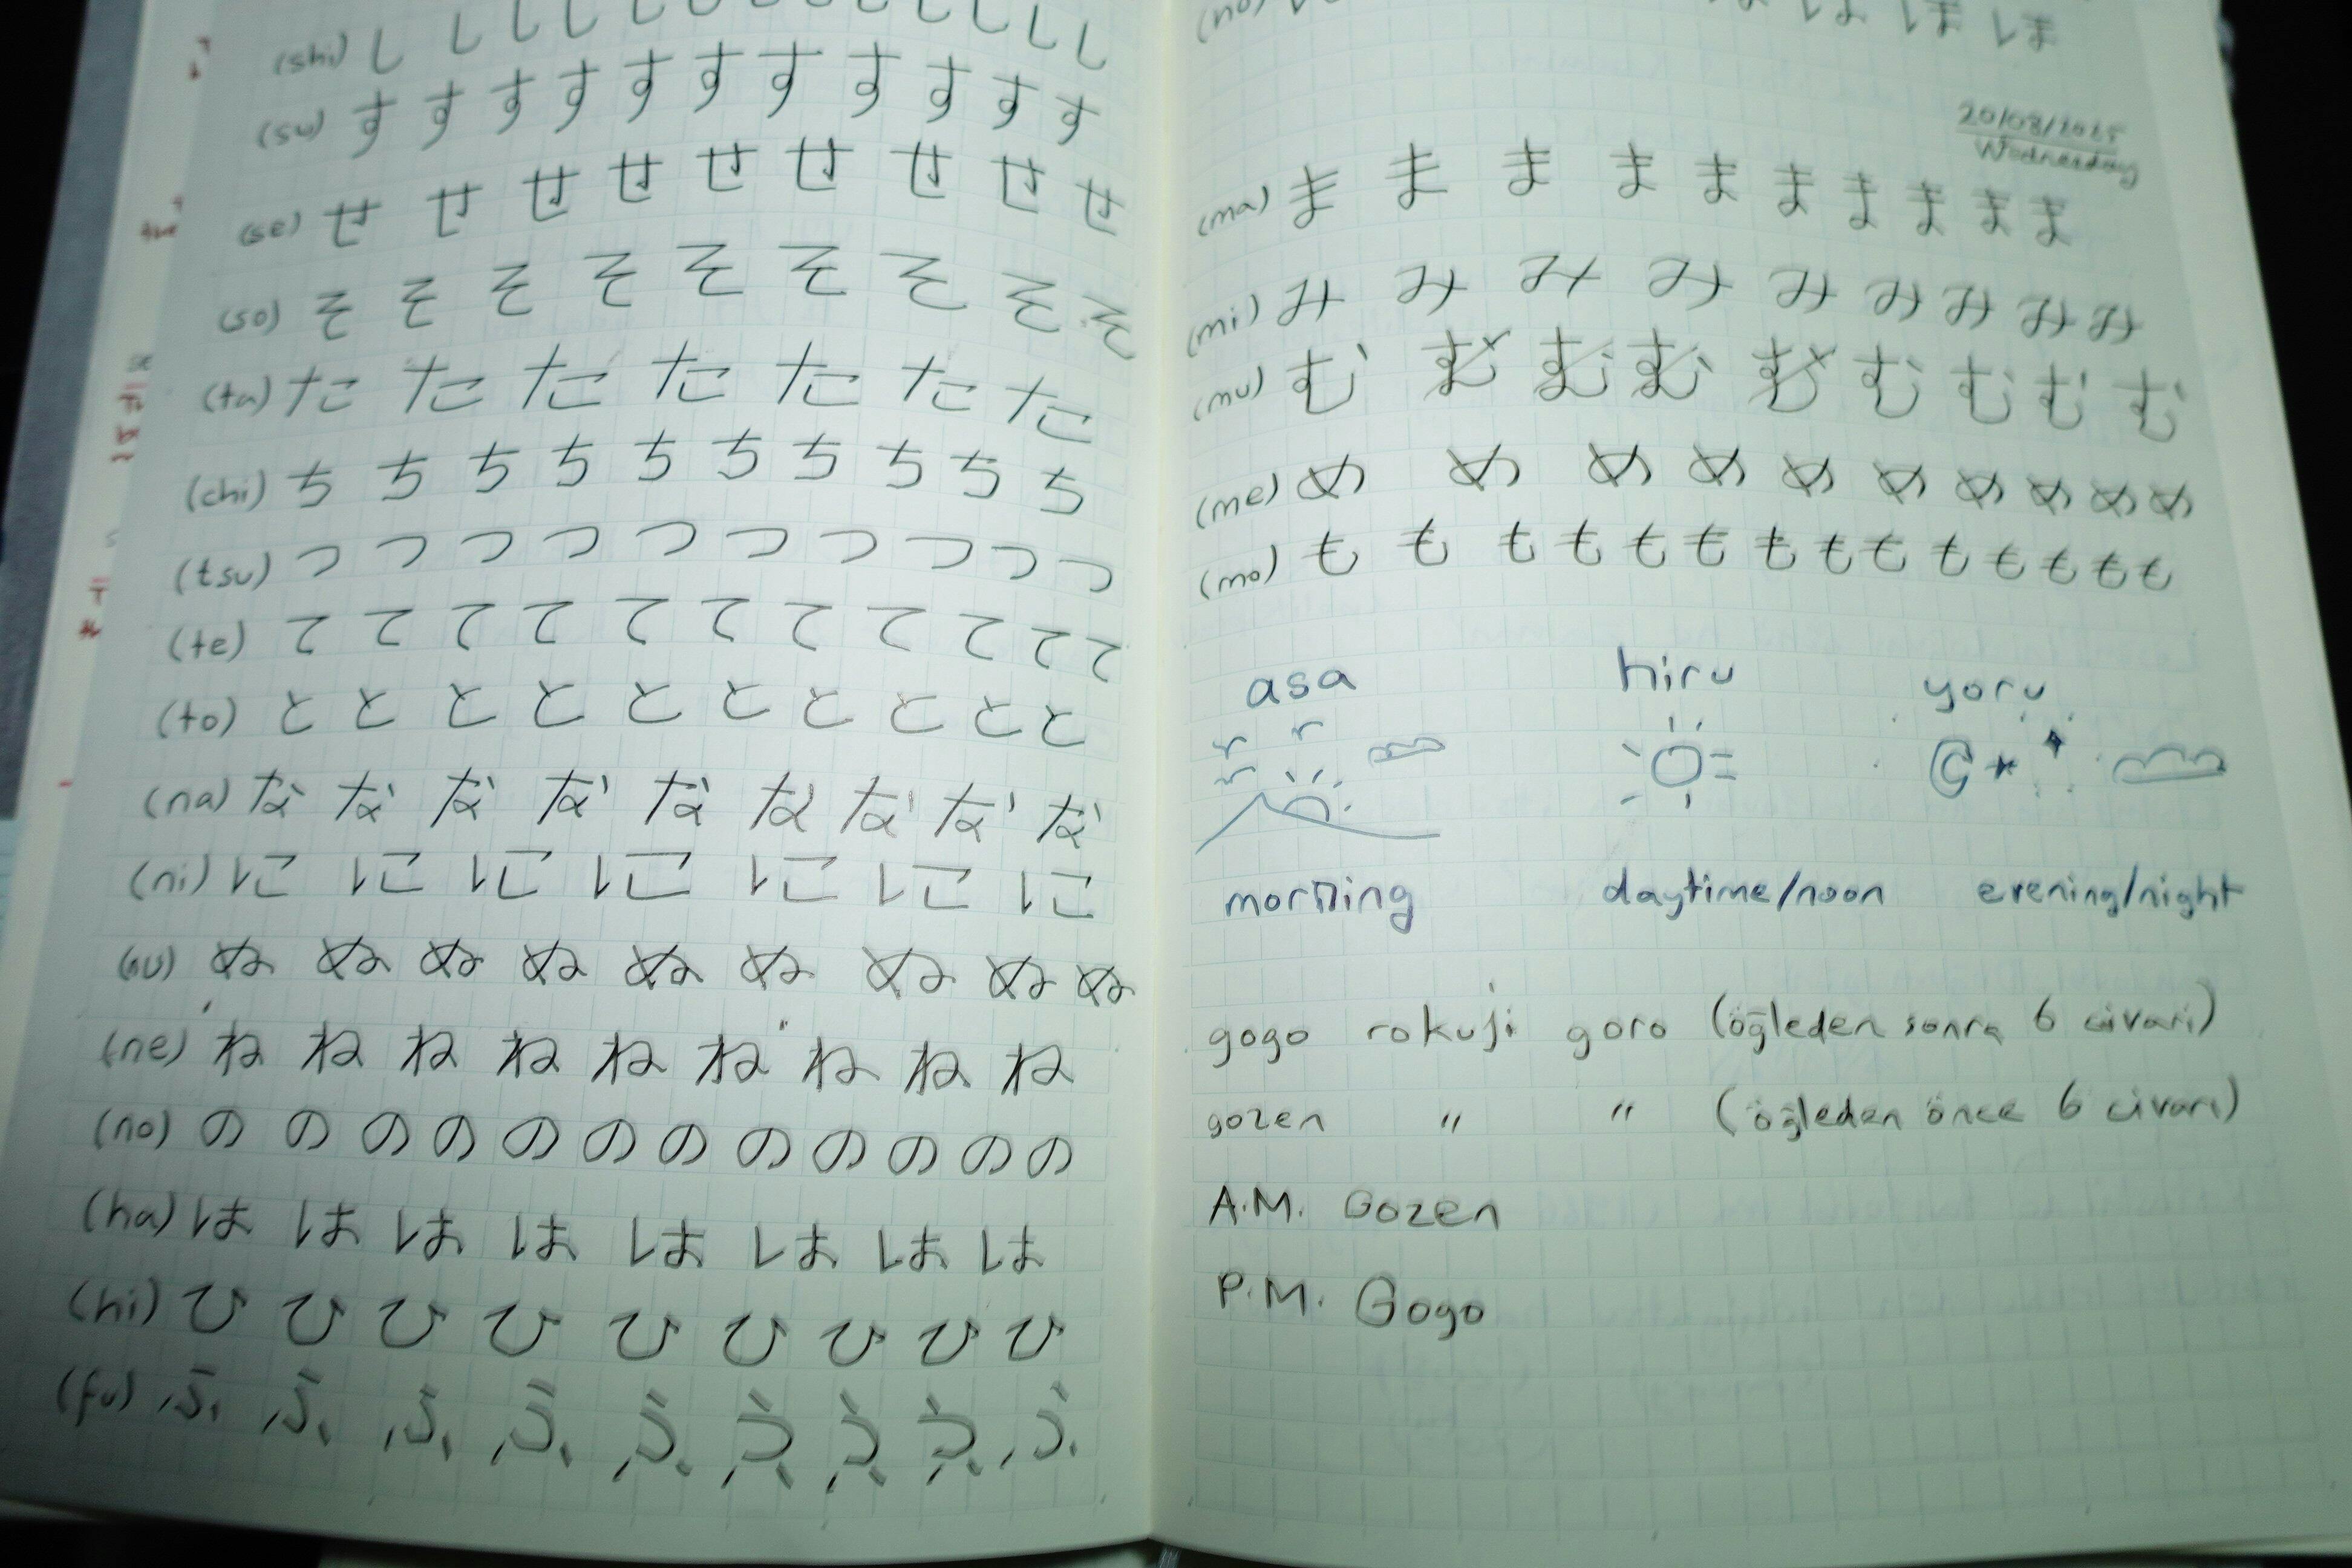 (shi) し し し し し し し し し し し し
(su) す す す す す す す す す す す
(se) せ せ せ せ せ せ せ せ せ
(so) そ そ そ そ そ そ そ そ そ
(ta) た た た た た た た
(chi) ち ち ち ち ち ち ち ち ち ち
(tsu) つ つ つ つ つ つ つ つ つ つ
(te) て て て て て て て て て て て
(to) と と と と と と と と と と
(na) な な な な な な な な な
(ni) に に に に に に に
(nu) ぬ ぬ ぬ ぬ ぬ ぬ ぬ ぬ ぬ
(ne) ね ね ね ね ね ね ね ね ね
(no) の の の の の の の の の の の の
(ha) は は は は は は は は
(hi) ひ ひ ひ ひ ひ ひ ひ ひ ひ
(fu) ふ ふ ふ ふ ふ ふ ふ ふ ふ
ほ ほ ほ ほ
20/08/2025
Wednesday
(ma) ま ま ま ま ま ま ま ま ま ま
(mi) み み み み み み み み み
(mu) む む む む む む む む む
(me) め め め め め め め め め め
(mo) も も も も も も も も も も も も も も
asa hiru yoru
morning daytime/noon evening/night
gogo rokuji goro (öğleden sonra 6 civarı)
gozen " " (öğleden önce 6 civarı)
A.M. Gozen
P.M. Gogo